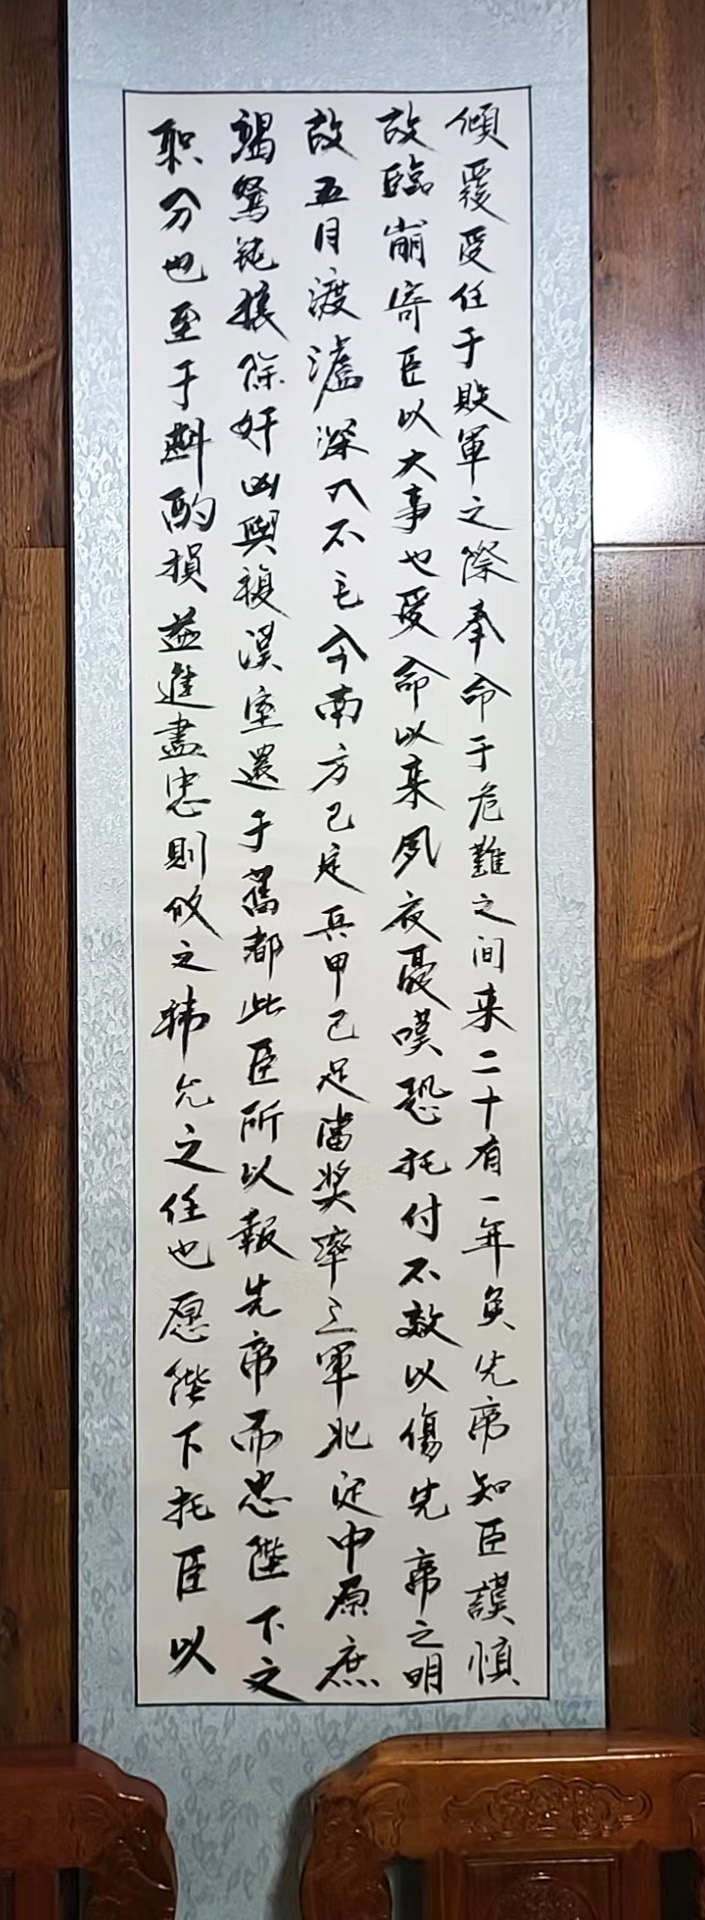 傾覆受任于敗軍之際奉命于危難之间来二十有一年矣先帝知臣謹慎
故臨崩寄臣以大事也受命以来夙夜憂嘆恐托付不效以傷先帝之明
故五月渡瀘深入不毛今南方已定兵甲已足當奖率三軍北定中原庶
竭駑鈍攘除奸凶興復漢室還于舊都此臣所以報先帝而忠陛下之
职分也至于斟酌損益進盡忠則攸之祎允之任也愿陛下托臣以